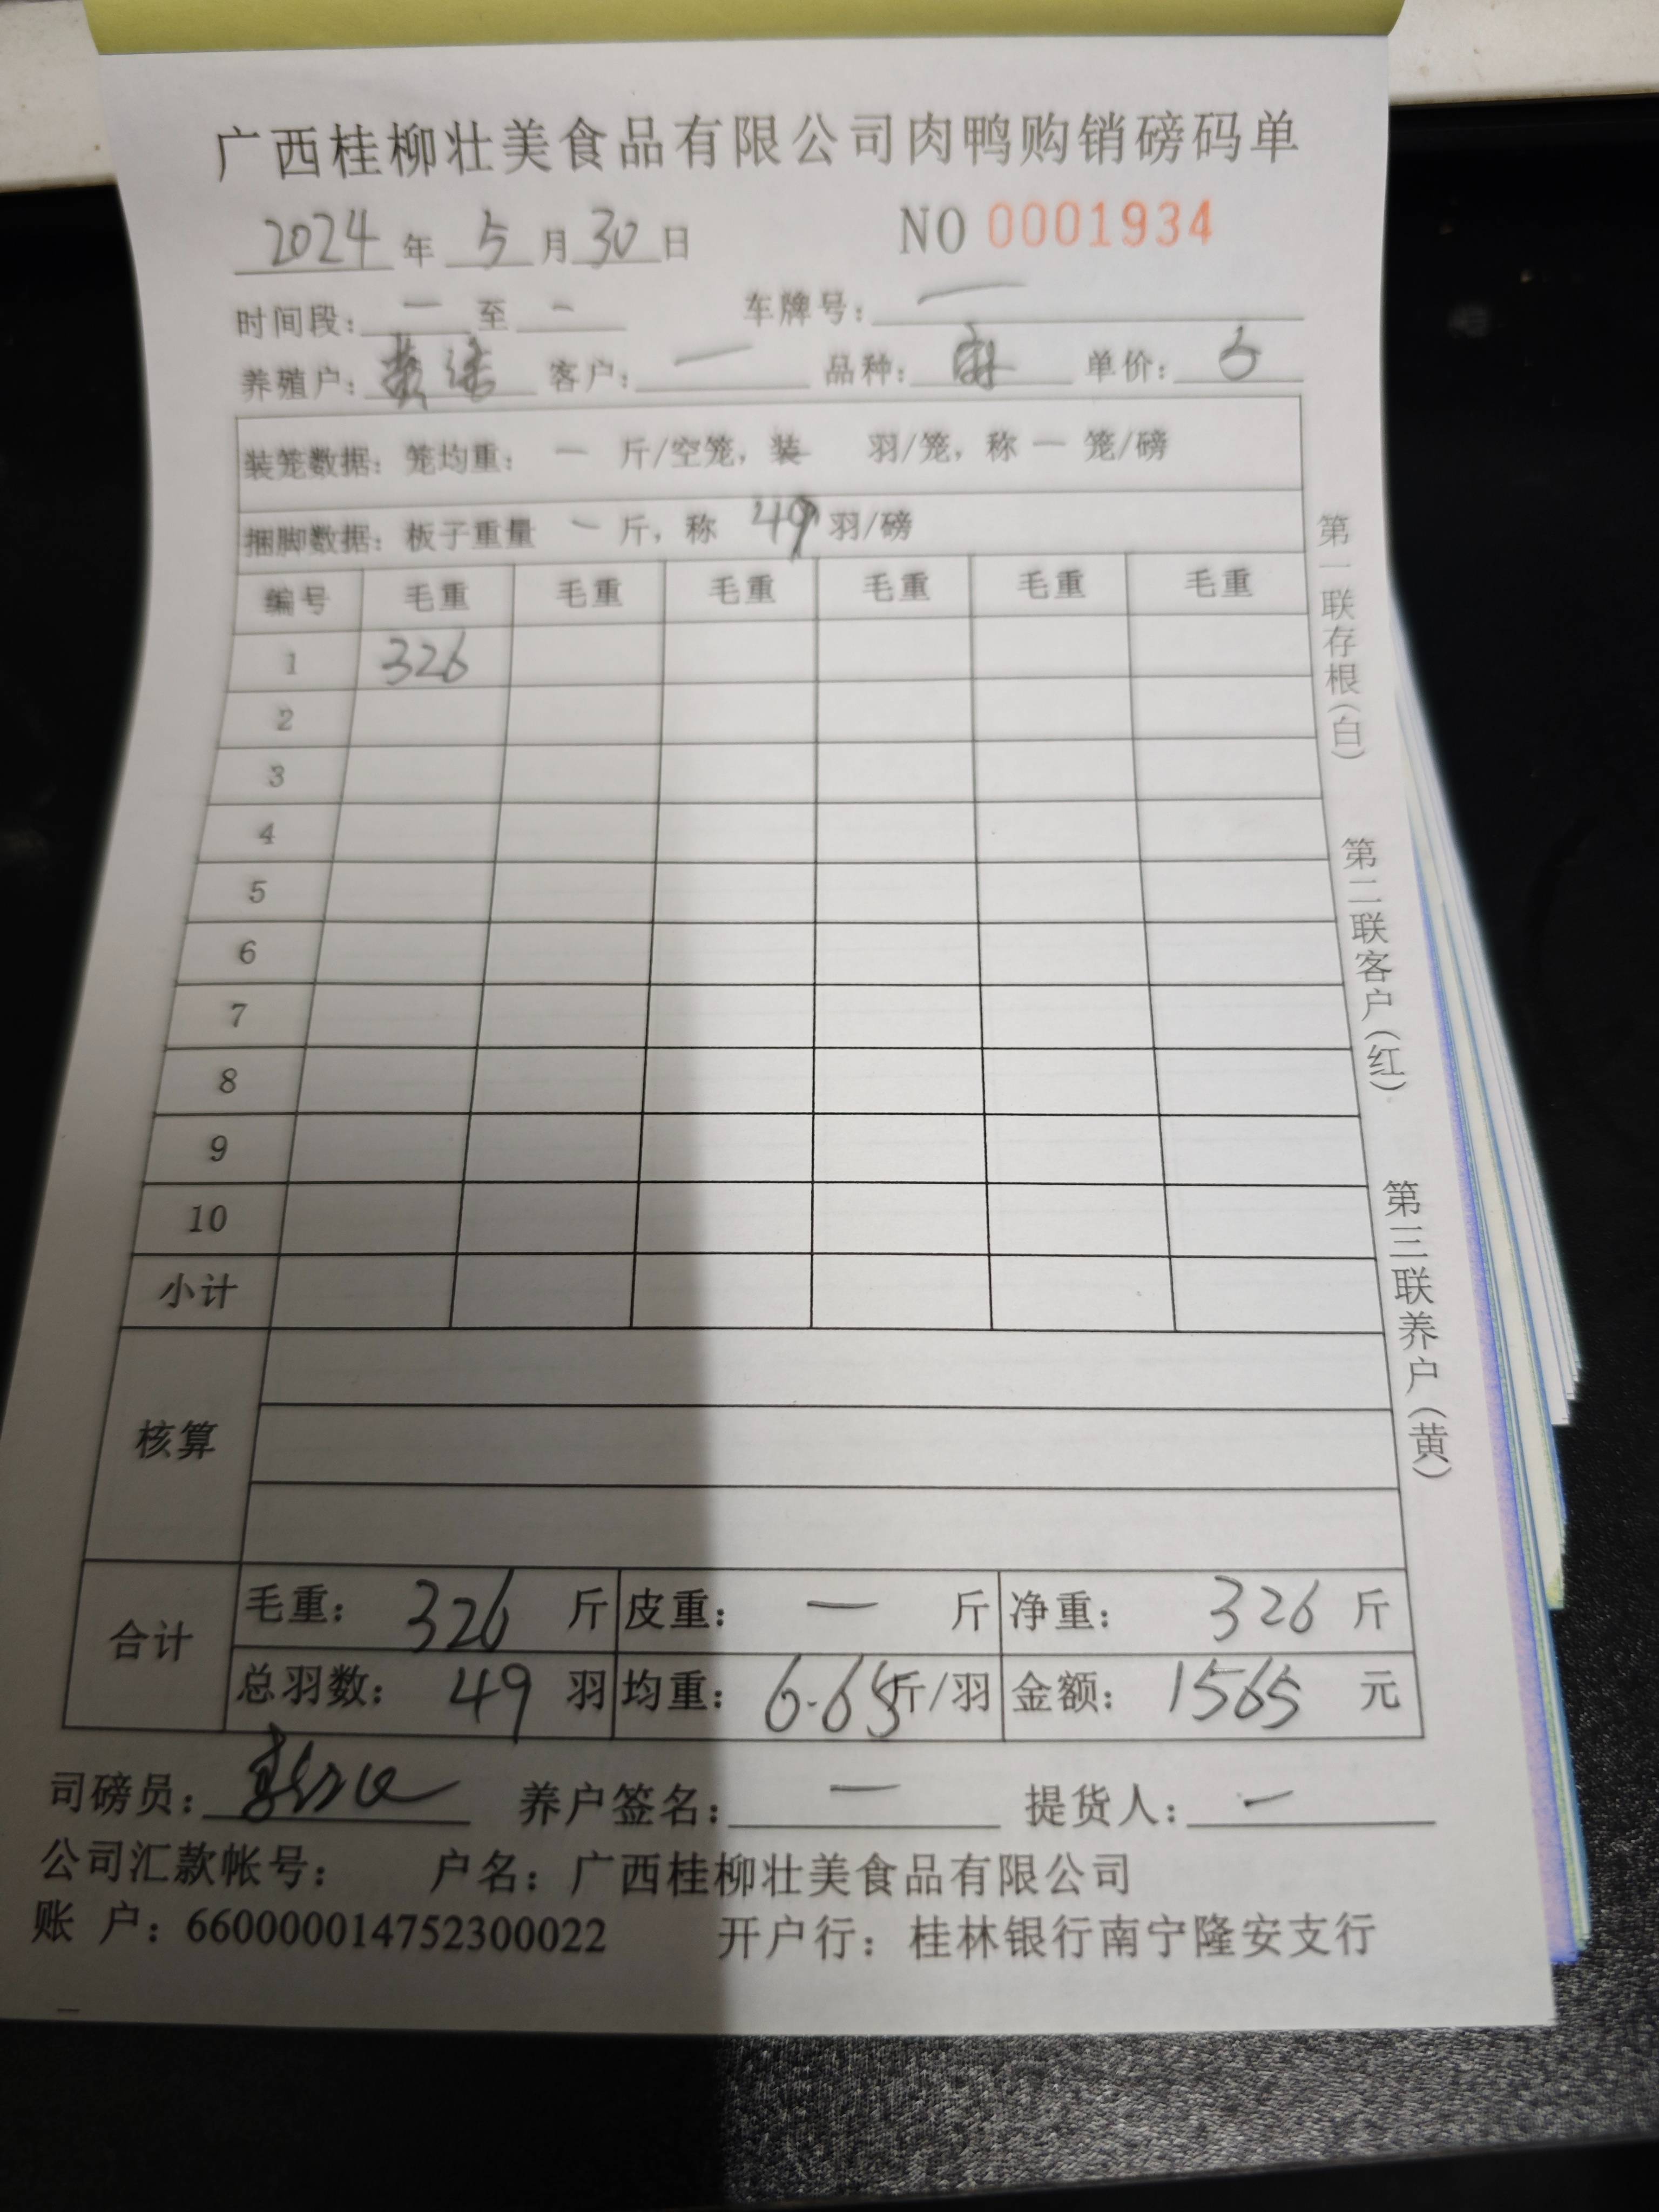 广西桂柳壮美食品有限公司肉鸭购销磅码单
2024 年 5 月 30 日 NO 0001934
时间段: — 至 — 车牌号: —
养殖户: 黄 客户: — 品种: 麻 单价:
装笼数据: 笼均重: — 斤/空笼, 装 羽/笼, 称 — 笼/磅
捆脚数据: 板子重量 — 斤, 称 49 羽/磅
编号 毛重 毛重 毛重 毛重 毛重 毛重
1 326
2
3
4
5
6
7
8
9
10
小计
核算
合计
毛重: 326 斤 皮重: — 斤 净重: 326 斤
总羽数: 49 羽 均重: 6.65 斤/羽 金额: 1565 元
司磅员: 养户签名: — 提货人: —
公司汇款帐号: 户名: 广西桂柳壮美食品有限公司
账 户: 660000014752300022 开户行: 桂林银行南宁隆安支行
第一联存根(白) 第二联客户(红) 第三联养户(黄)